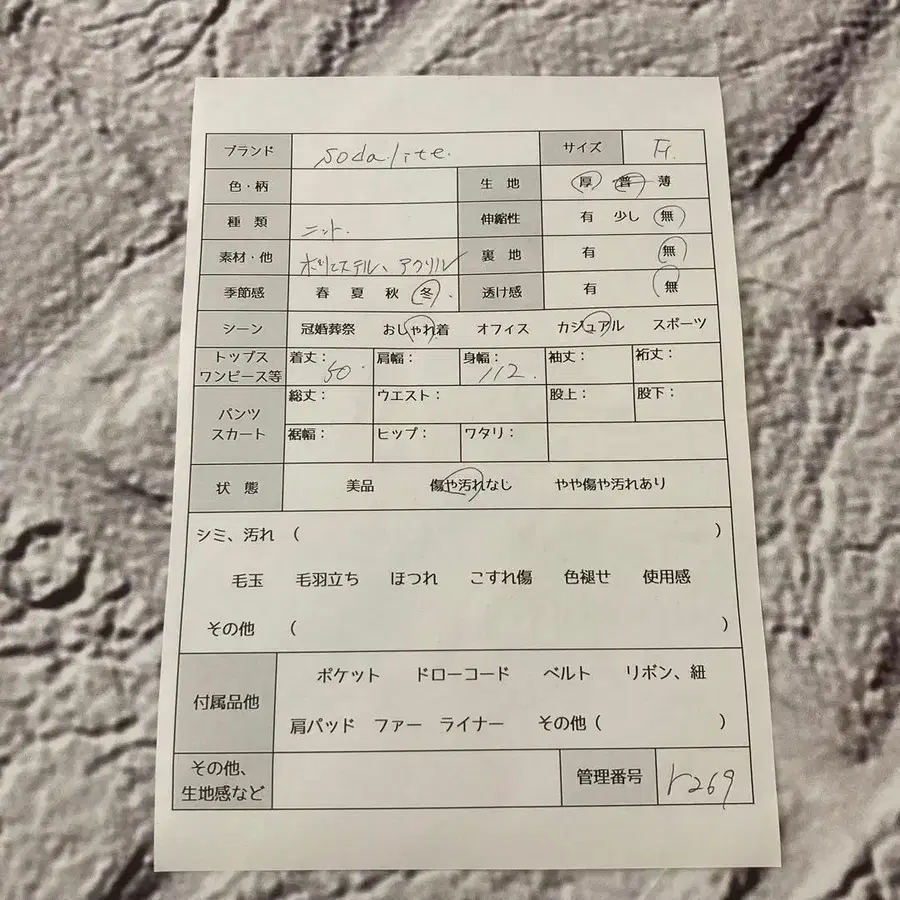 ブランド sodalite. サイズ Fr.
色・柄 生 地 厚 普 薄
種 類 ニット. 伸縮性 有 少し 無
素材・他 ポリエステル、アクリル 裏 地 有 無
季節感 春 夏 秋 冬 . 透け感 有 無
シーン 冠婚葬祭 おしゃれ着 オフィス カジュアル スポーツ
トップス
ワンピース等 着丈: 50. 肩幅: 身幅: 112. 袖丈: 裄丈:
パンツ
スカート 総丈: ウエスト: 股上: 股下:
裾幅: ヒップ: ワタリ:
状 態 美品 傷や汚れなし やや傷や汚れあり
シミ、汚れ ( )
毛玉 毛羽立ち ほつれ こすれ傷 色褪せ 使用感
その他 ( )
付属品他 ポケット ドローコード ベルト リボン、紐
肩パッド ファー ライナー その他 ( )
その他、
生地感など 管理番号 r269